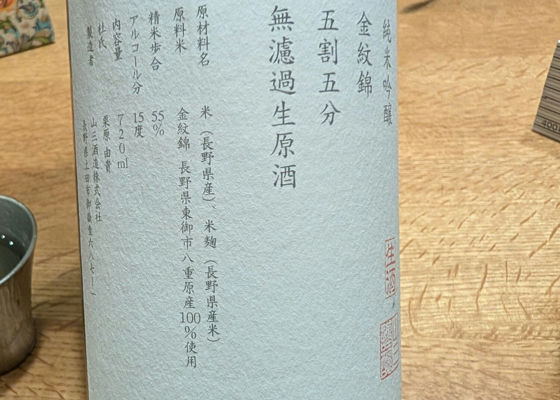 純米吟醸
金紋錦
五割五分
無濾過生原酒
原材料名 米（長野県産）、米麹（長野県産米）
原料米 金紋錦 長野県東御市八重原産100%使用
精米歩合 55%
アルコール分 15度
内容量 720ml
杜氏 栗原由貴
製造者 山三酒造株式会社
長野県上田市御嶽堂六八七ー一
生酒